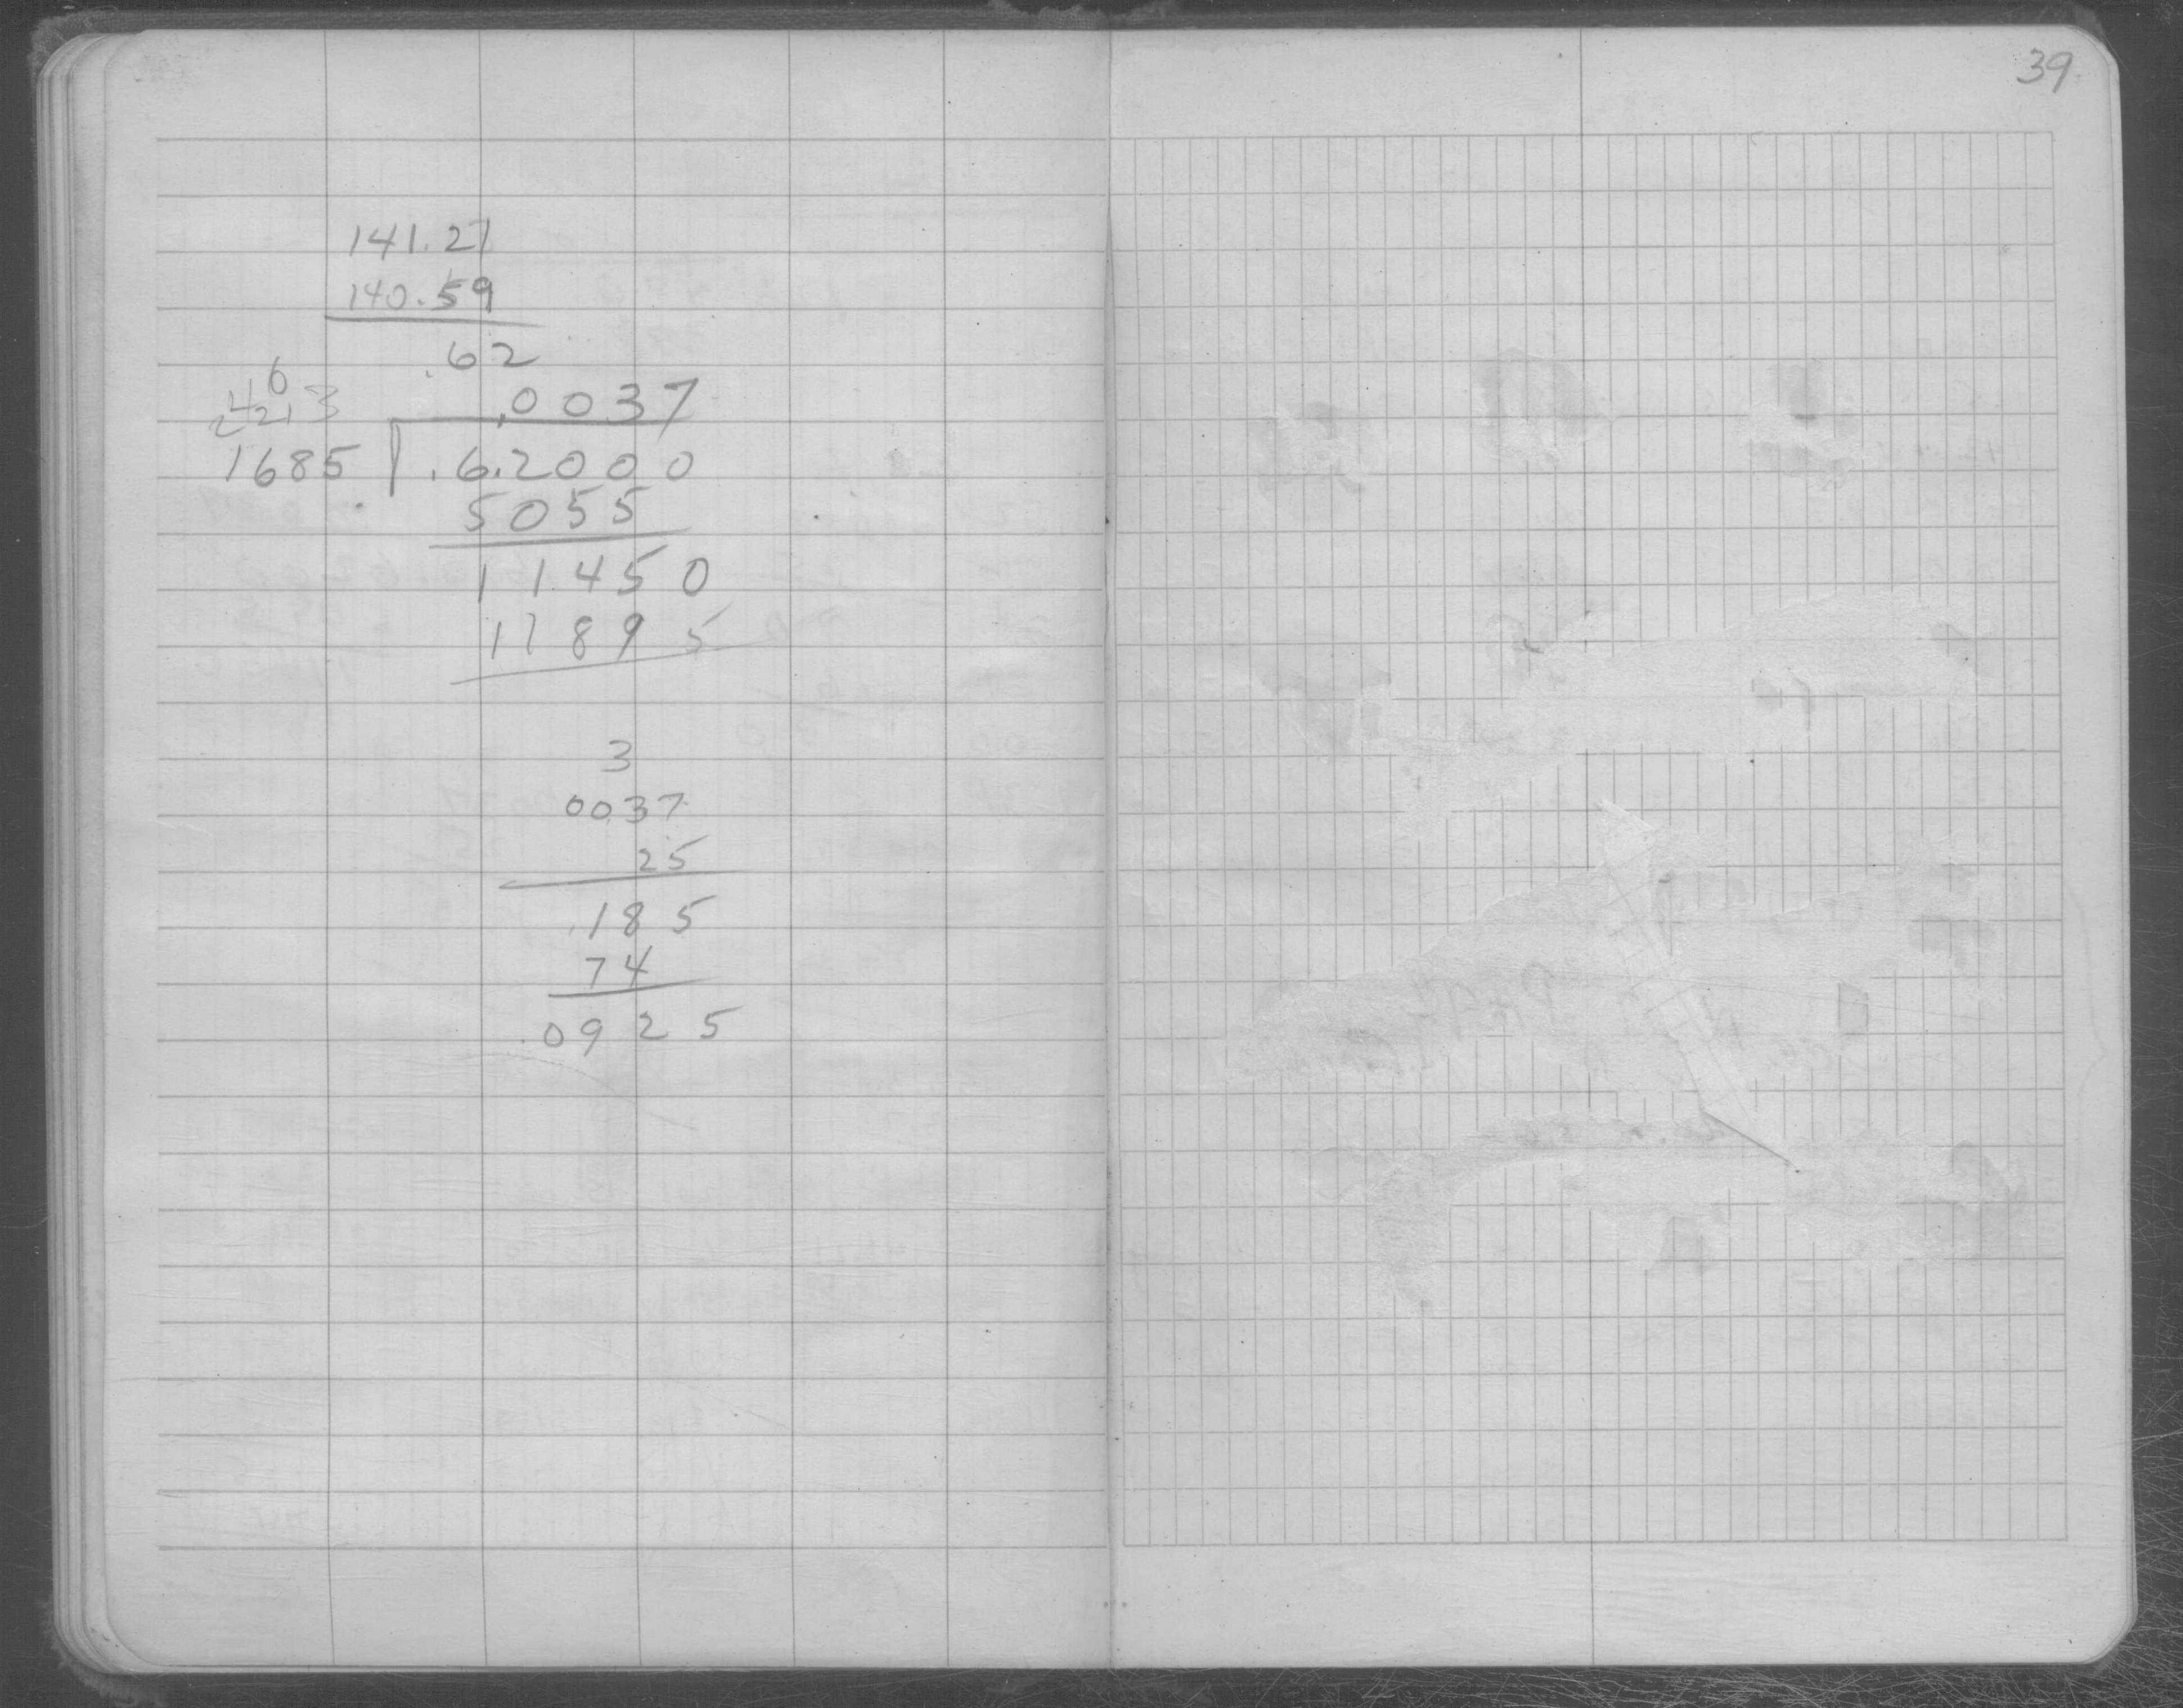 39
141.21
140.59
.62
6
4 3
2 21
.0037
1685 .6.2000
5055
11450
11895
3
0037
25
.185
74
.0925